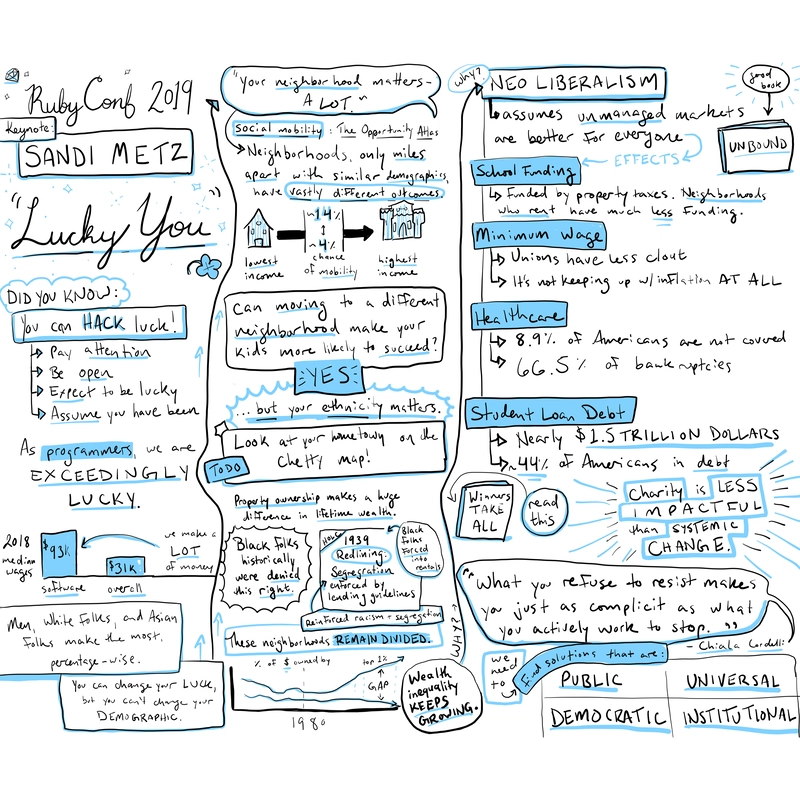 RubyConf 2019
Keynote:
SANDI METZ
"Lucky You"
DID YOU KNOW:
You can HACK luck!
Pay attention
Be open
Expect to be lucky
Assume you have been
As programmers, we are
EXCEEDINGLY
LUCKY.
2018
median
wages
$93k
software
$31k
overall
we make a
LOT
of money
Men, White Folks, and Asian
Folks make the most,
percentage-wise.
You can change your LUCK,
but you can't change your
DEMOGRAPHIC.
"Your neighborhood matters-
A LOT."
Social mobility: The Opportunity Atlas
Neighborhoods, only miles
apart with similar demographics,
have vastly different outcomes.
lowest
income
~14%
~4%
chance
of mobility
highest
income
Can moving to a different
neighborhood make your
kids more likely to succeed?
YES
...but your ethnicity matters.
TODO
Look at your hometown on the
Chetty map!
Property ownership makes a huge
difference in lifetime wealth.
Black folks
historically
were denied
this right.
HOLC
1939
Redlining:
Segregation
enforced by
lending guidelines
Black
folks
forced
into
rentals
Reinforced racism + segregation
These neighborhoods REMAIN DIVIDED.
% of $ owned by
top 1%
GAP
1980
Wealth
inequality
KEEPS
GROWING.
WHY??
why?
NEO LIBERALISM
assumes unmanaged markets
are better for everyone
EFFECTS
good
book
UNBOUND
School Funding
Funded by property taxes. Neighborhoods
who rent have much less funding.
Minimum Wage
Unions have less clout
It's not keeping up w/inflation AT ALL
Healthcare
8.9% of Americans are not covered
66.5% of bankruptcies
Student Loan Debt
Nearly $1.5 TRILLION DOLLARS
~44% of Americans in debt
Winners
TAKE
ALL
read
this
Charity is LESS
IMPACTFUL
than SYSTEMIC
CHANGE.
"What you refuse to resist makes
you just as complicit as what
you actively work to stop."
- Chiala
we
need
to
Find solutions that are:
PUBLIC
UNIVERSAL
DEMOCRATIC
INSTITUTIONAL